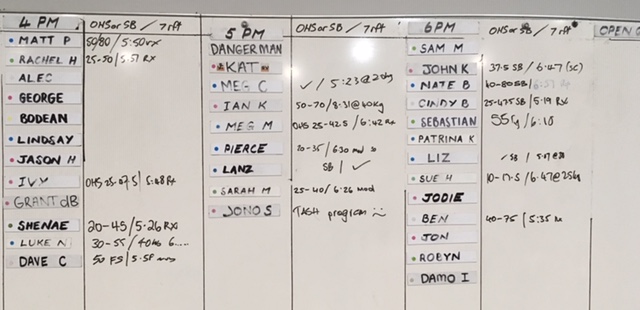 4 PM OHS or SB / 7 rft
MATT P 50/80 / 5:50 rx
RACHEL H 25-50 / 5:51 RX
ALEC
GEORGE
BODEAN
LINDSAY
JASON H
IVY OHS
GRANT dB
SHENAE 20-45 / 5:26 RX
LUKE N 30-55 /
DAVE C 50 FS /
5 PM OHS or SB / 7 rft
DANGERMAN
KAT
MEG C ✓ / 5:23 @
IAN K 50-70 / 8:31 @ 40kg
MEG M OHS 25-42.5 / 6:42 Rx
PIERCE 20-35 / 6:30 mod
LANZ SB | ✓
SARAH M 25-40 / 6:26 mod
JONO S TASH program
6PM OHS or SB / 7 rft
SAM M
JOHN K 37.5 SB / 6:47 (SC)
NATE B 40-80 SB /
CINDY B 25-47.5 SB / 5:19 Rx
SEBASTIAN 55 / 6:18
PATRINA K
LIZ ✓ SB |
SUE H 10-17.5 / 6:47 @ 25kg
JODIE
BEN 40-75 | 5:35
JON
ROBYN
DAMO I
OPEN